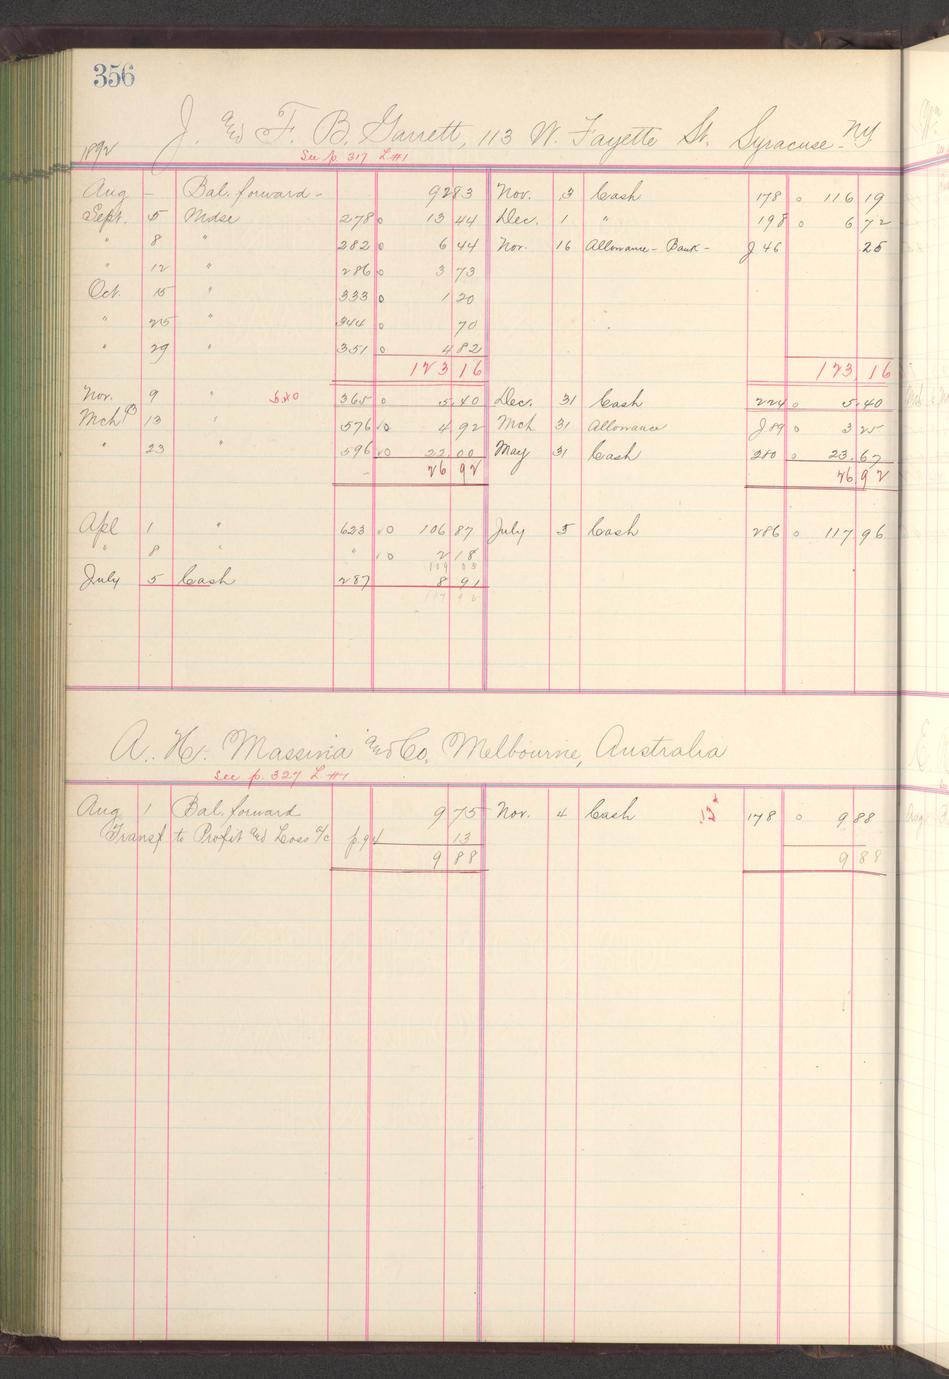 356
J. and F. B. Garrett, 113 W. Fayette St. Syracuse - NY
1892
See p. 317 L #1
Aug - Bal. forward - 92 83 Nov. 3 Cash 178 o 116 19
Sept. 5 Mdse 278 o 13 44 Dec. 1 " 198 o 6 72
" 8 " 282 o 6 44 Nov. 16 Allowance - Bank - J 46 25
" 12 " 286 o 3 73
Oct. 15 " 333 o 1 20
" 25 " 344 o 70
" 29 " 351 o 4 82
123 16 123 16
Nov. 9 " 5.40 365 o 5.40 Dec. 31 Cash 224 o 5.40
Mch 93 13 " 576 10 4 92 Mch 31 Allowance J 89 o 3 25
" 23 " 596 10 22.00 May 31 Cash 280 o 23.67
26 92 26.92
Apl 1 " 623 10 106 87 July 5 Cash 286 o 117 96
" 8 " " 10 2 18
109 05
July 5 Cash 287 8 91
A. H. Massina and Co, Melbourne, Australia
See p. 327 L #1
Aug 1 Bal. forward 9 75 Nov. 4 Cash 178 o 9 88
Transf. to Profit and Loss a/c p. 94 13
9 88 9 88